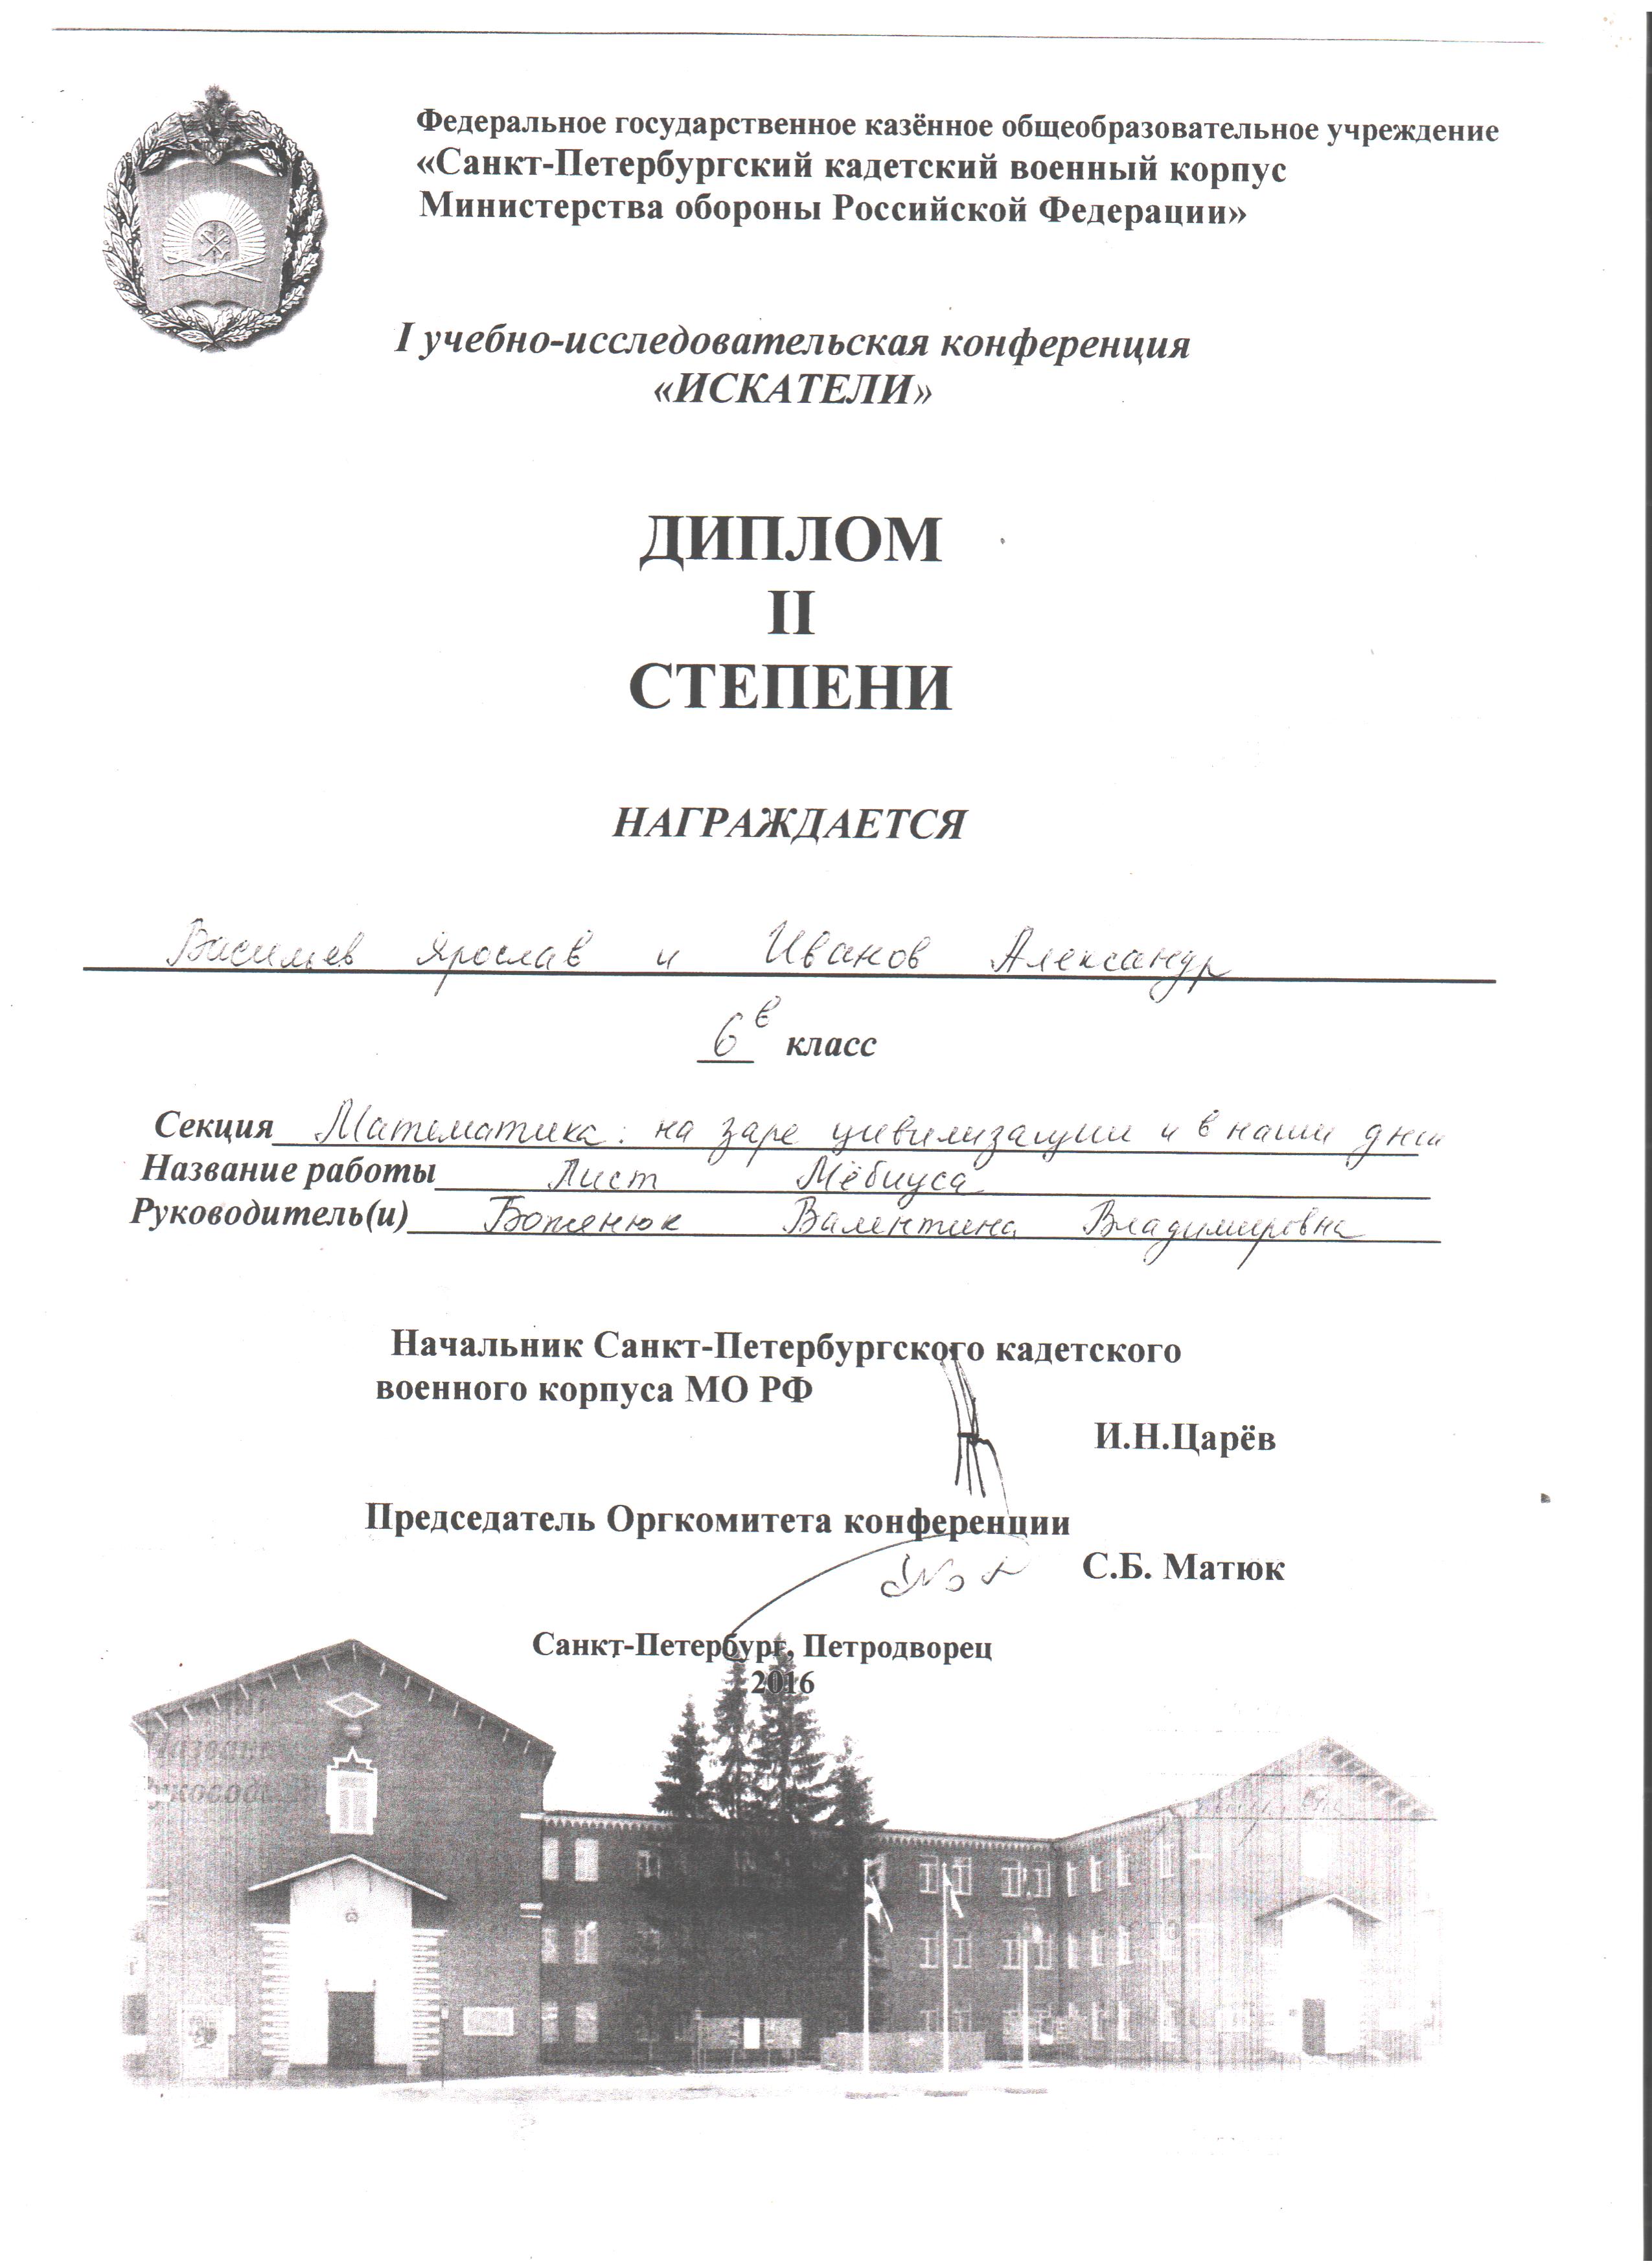 Федеральное государственное казённое общеобразовательное учреждение
«Санкт-Петербургский кадетский военный корпус
Министерства обороны Российской Федерации»
I учебно-исследовательская конференция
«ИСКАТЕЛИ»
ДИПЛОМ
II
СТЕПЕНИ
НАГРАЖДАЕТСЯ
Васильев Ярослав и Иванов Александр
6 в класс
Секция Математика: на заре цивилизации и в наши дни
Название работы Лист Мёбиуса
Руководитель(и) Боженюк Валентина Владимировна
Начальник Санкт-Петербургского кадетского
военного корпуса МО РФ
И.Н.Царёв
Председатель Оргкомитета конференции
С.Б. Матюк
Санкт-Петербург, Петродворец
2016